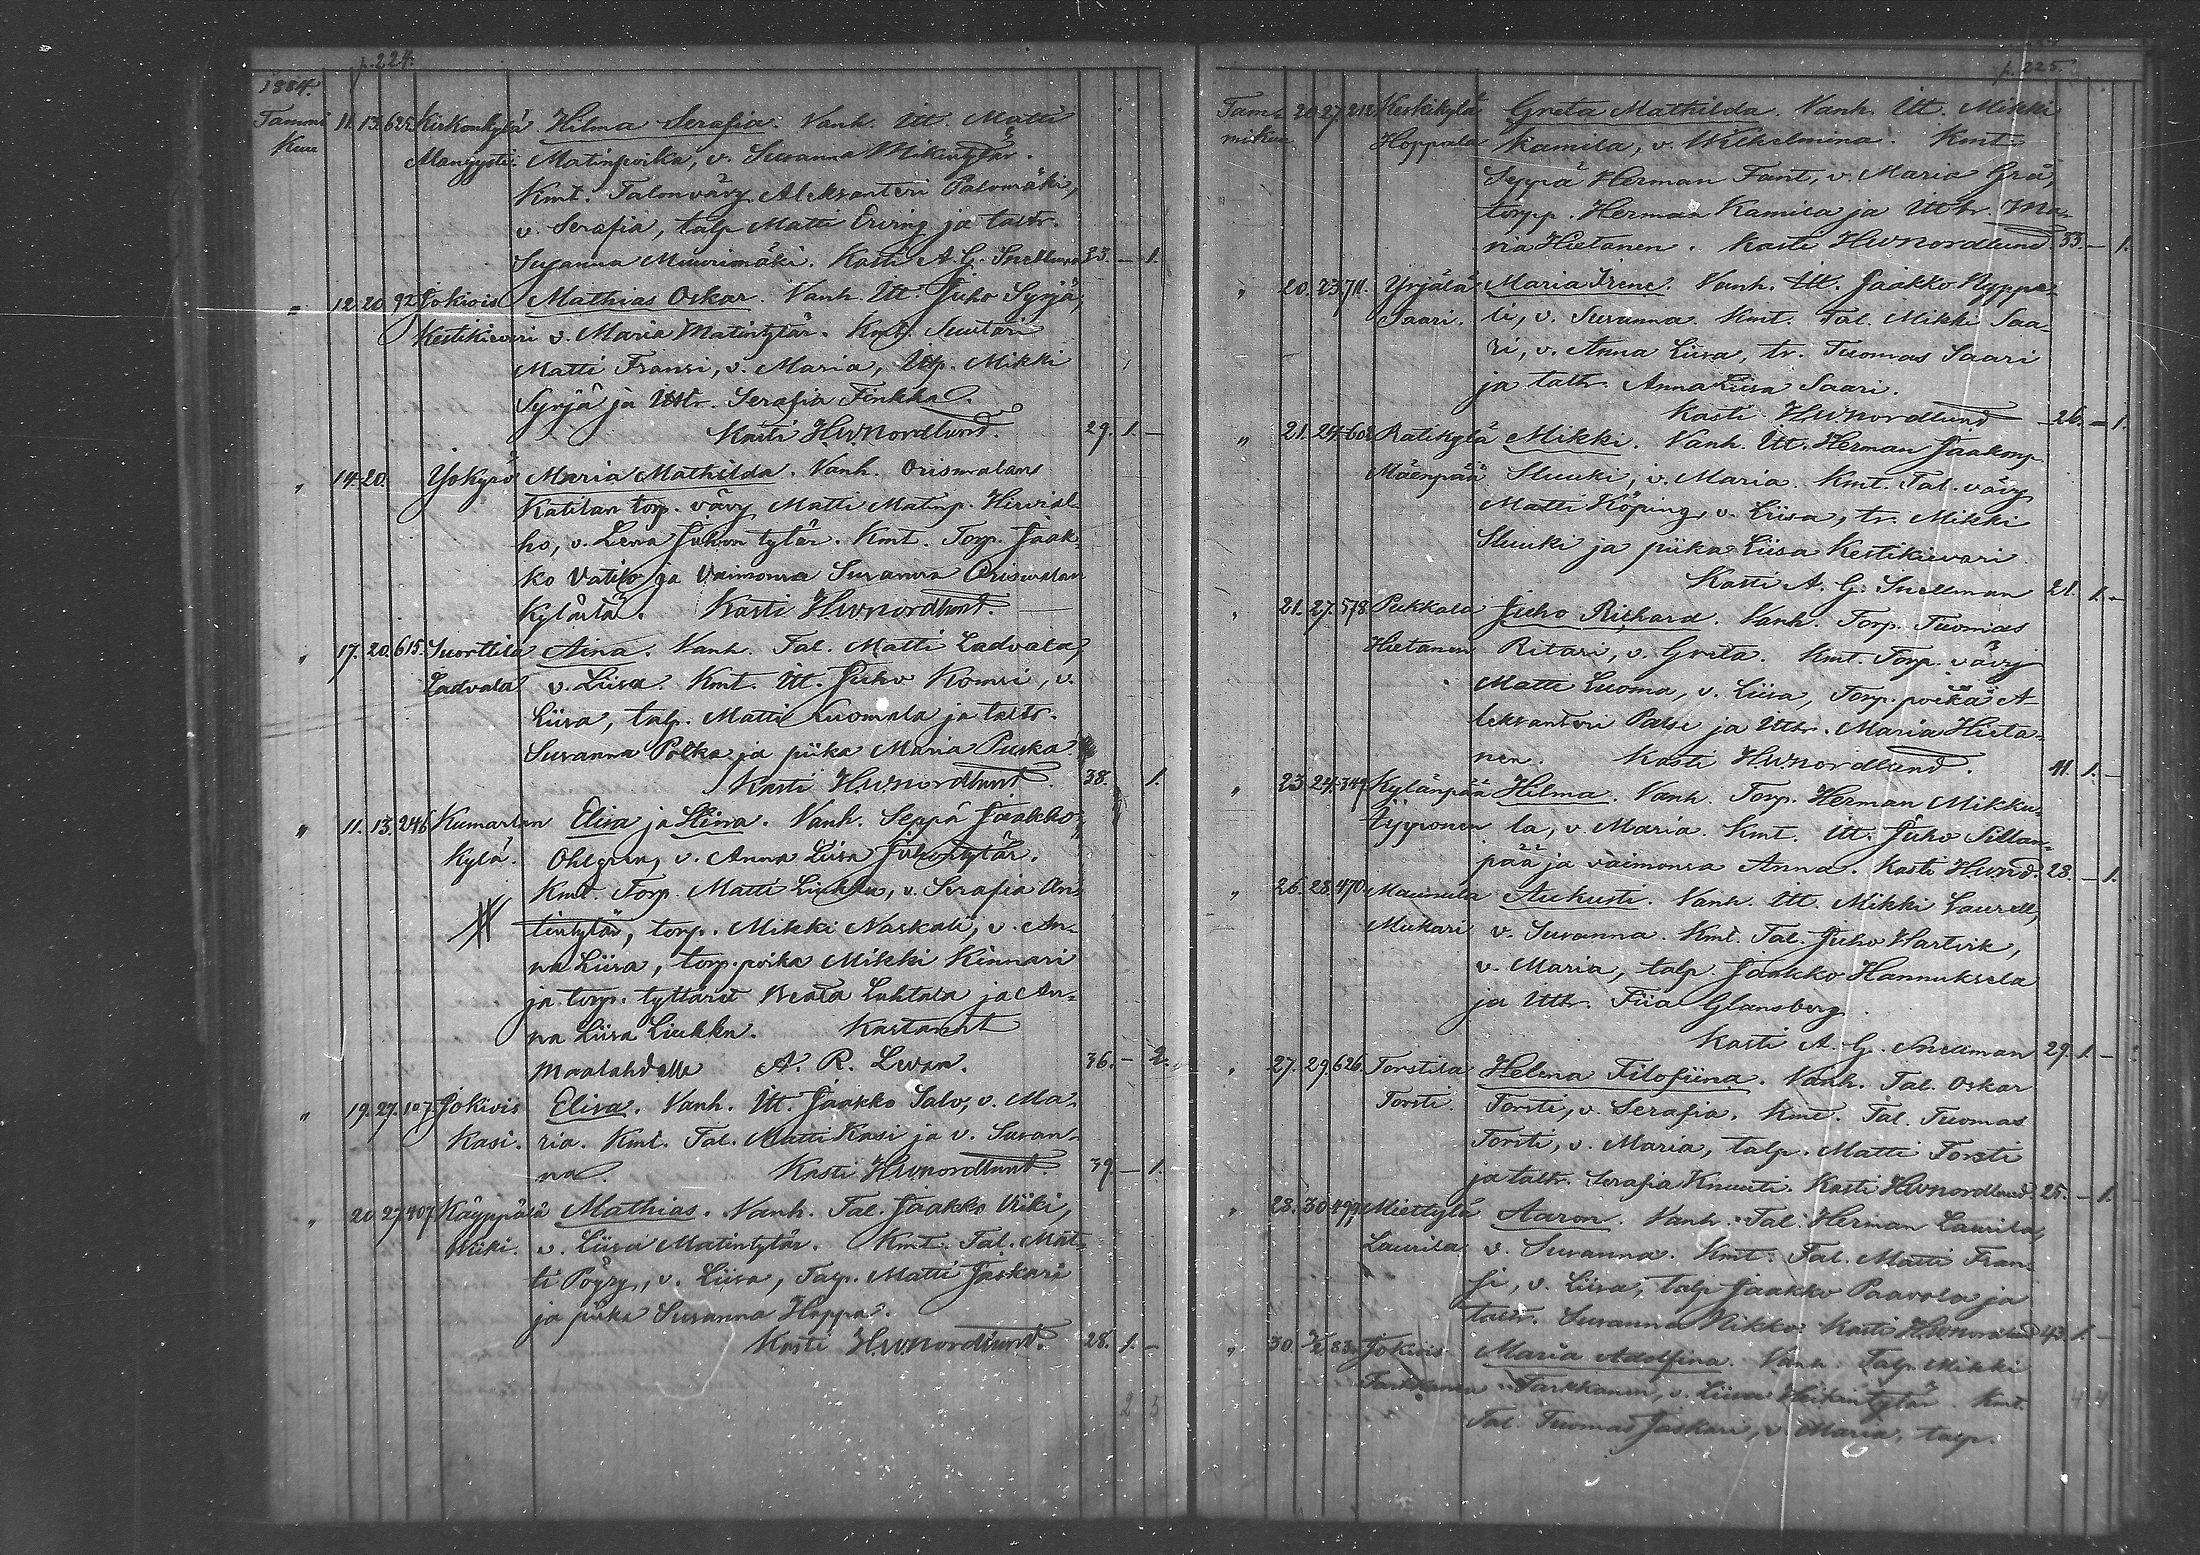 p. 224.
1884.
Tammi 11. 13. 622 Kirkonkylä Hilma Serafia. Vanh. Itt. Matti
Kuu Mangysti. Matinpoika, v. Susanna Mikintytär.
Kmt. Talonvävy Aleksanteri Palomäki,
v. Serafia, talp. Matti Erving ja taltr.
Susanna Muurimäki. Kasti A. G. Snellman 23. – 1.
" 12. 20. 92 Jokivis Mathias Oskar. Vanh. Itt. Juho Syrjä,
Kestikievari v. Maria Matintytär. Kmt. Suutari
Matti Franri, v. Maria, Ittp. Mikki
Syrjä ja Ittr. Serafia Finkka.
Kasti H.W. Nordlund. 29. 1. –
" 14. 20. Ylökyrö Maria Mathilda. Vanh. Orismalans
Katilan torp. vävy Matti Matinp. Hirviel-
ho, v. Lena Juhon tytär. Kmt. Torp. Jaak-
ko Vatilo ja Vaimonsa Susanna Orismalan
Kylästä. Kasti H.W. Nordlund.
" 17. 20. 615. Suorttila Aina. Vanh. Tal. Matti Ladvala,
Ladvala v. Liisa. Kmt. Itt. Juho Komsi, v.
Liisa, talp. Matti Luomala ja taltr.
Susanna Polka ja piika Maria Puska
Kasti H.W. Nordlund. 38. 1.
" 11. 13. 246 Kumarlan Elisa ja Stina. Vanh. Seppä Jaakko
Kylä. Ohlgren, v. Anna Liisa Juhontytär.
Kmt. Torp. Matti Liukku, v. Serafia An-
tintytär, torp. Mikki Naskali, v. An-
na Liisa, torp. poika Mikki Kinnari
ja torp. tyttäret Beata Luhtala ja An-
na Liisa Liukku. Kastanut
Maalahdella A. R. Levan. 36. – 2.
" 19. 27. 107 Jokivis Elisa. Vanh. Itt. Jaakko Salo, v. Ma-
Kasi. ria. Kmt. Tal. Matti Kasi ja v. Susan-
na. Kasti H.W. Nordlund. 39. – 1.
" 20 27. 407 Käyppälä Mathias. Vanh. Tal. Jaakko Wiiki,
Wiiki. v. Liisa Matintytär. Kmt. Tal. Mat-
ti Pöyry, v. Liisa, Talp. Matti Jaskari
ja piika Susanna Hoppa.
Kasti H.W. Nordlund. 28. 1. –
2 5
p. 225.
Tam- 20. 27. 212 Keskikylä Greta Mathilda. Vanh. Itt. Mikki
mikuu Hoppala Kamila, v. Wilhelmina. Kmt.
Seppä Herman Fant, v. Maria Grä,
torpp. Herman Kamila ja Ittr. Ma-
ria Hietanen. Kasti H.W. Nordlund. 33. – 1.
" 20. 23. 711. Yrjälä Maria Irene. Vanh. Itt. Jaakko Nyppe-
Saari. li, v. Susanna. Kmt. Tal. Mikki Saa-
ri, v. Anna Liisa, tr. Tuomas Saari
ja taltr. Anna Liisa Saari.
Kasti H.W. Nordlund 26. – 1.
" 21. 24. 602 Ratikylä Mikki. Vanh. Itt. Herman Jaakonp.
Mäenpää Sluuki, v. Maria. Kmt. Tal. vävy
Matti Köping, v. Liisa, tr. Mikki
Sluuki ja piika Liisa Kestikievari
Kasti A. G. Snellman 21. 1. –
" 21. 27. 578. Pukkala Juho Richard. Vanh. Torp. Tuomas
Hietanen Ritari, v. Greta. Kmt. Torp. vävy
Matti Luoma, v. Liisa, Torp. poika A-
leksanteri Palsi ja Ittr. Maria Hieta-
nen. Kasti H.W. Nordlund. 41. 1. –
" 23. 24. 349 Kylänpää Hilma. Vanh. Torp. Herman Mikku-
Typponen la, v. Maria. Kmt. Itt. Juho Sillan-
pää ja vaimonsa Anna. Kasti H.W.N.d. 28. – 1.
" 26. 28. 470 Maunula Aukusti. Vanh. Itt. Mikki Laurell,
Mukari v. Susanna. Kmt. Tal. Juho Hartvik,
v. Maria, talp. Jaakko Hannuksela
ja Ittr. Fiia Glansberg.
Kasti A. G. Snellman 29. 1. –
" 27. 29. 626. Torstila Helena Filofiina. Vanh. Tal. Oskar
Torsti. Torsti, v. Serafia. Kmt. Tal. Tuomas
Torsti, v. Maria, talp. Matti Torsti
ja taltr. Serafia Knuuti. Kasti H.W. Nordlund. 25. – 1.
" 28. 30. 499 Miettylä Aaron. Vanh. Tal. Herman Laurila,
Laurila v. Susanna. Kmt. Tal. Matti Fran-
si, v. Liisa, talp. Jaakko Paavola ja
taltr. Susanna Nikko. Kasti H.W. Nordlund 43. 1. –
" 30. 3/2 83 Jokivis Maria Adolfina. Vanh. Talp. Mikki
Tarkkanen Tarkkanen, v. Liisa Heikintytär. Kmt.
Tal. Tuomas Jaskari, v. Maria, talp.
4 4